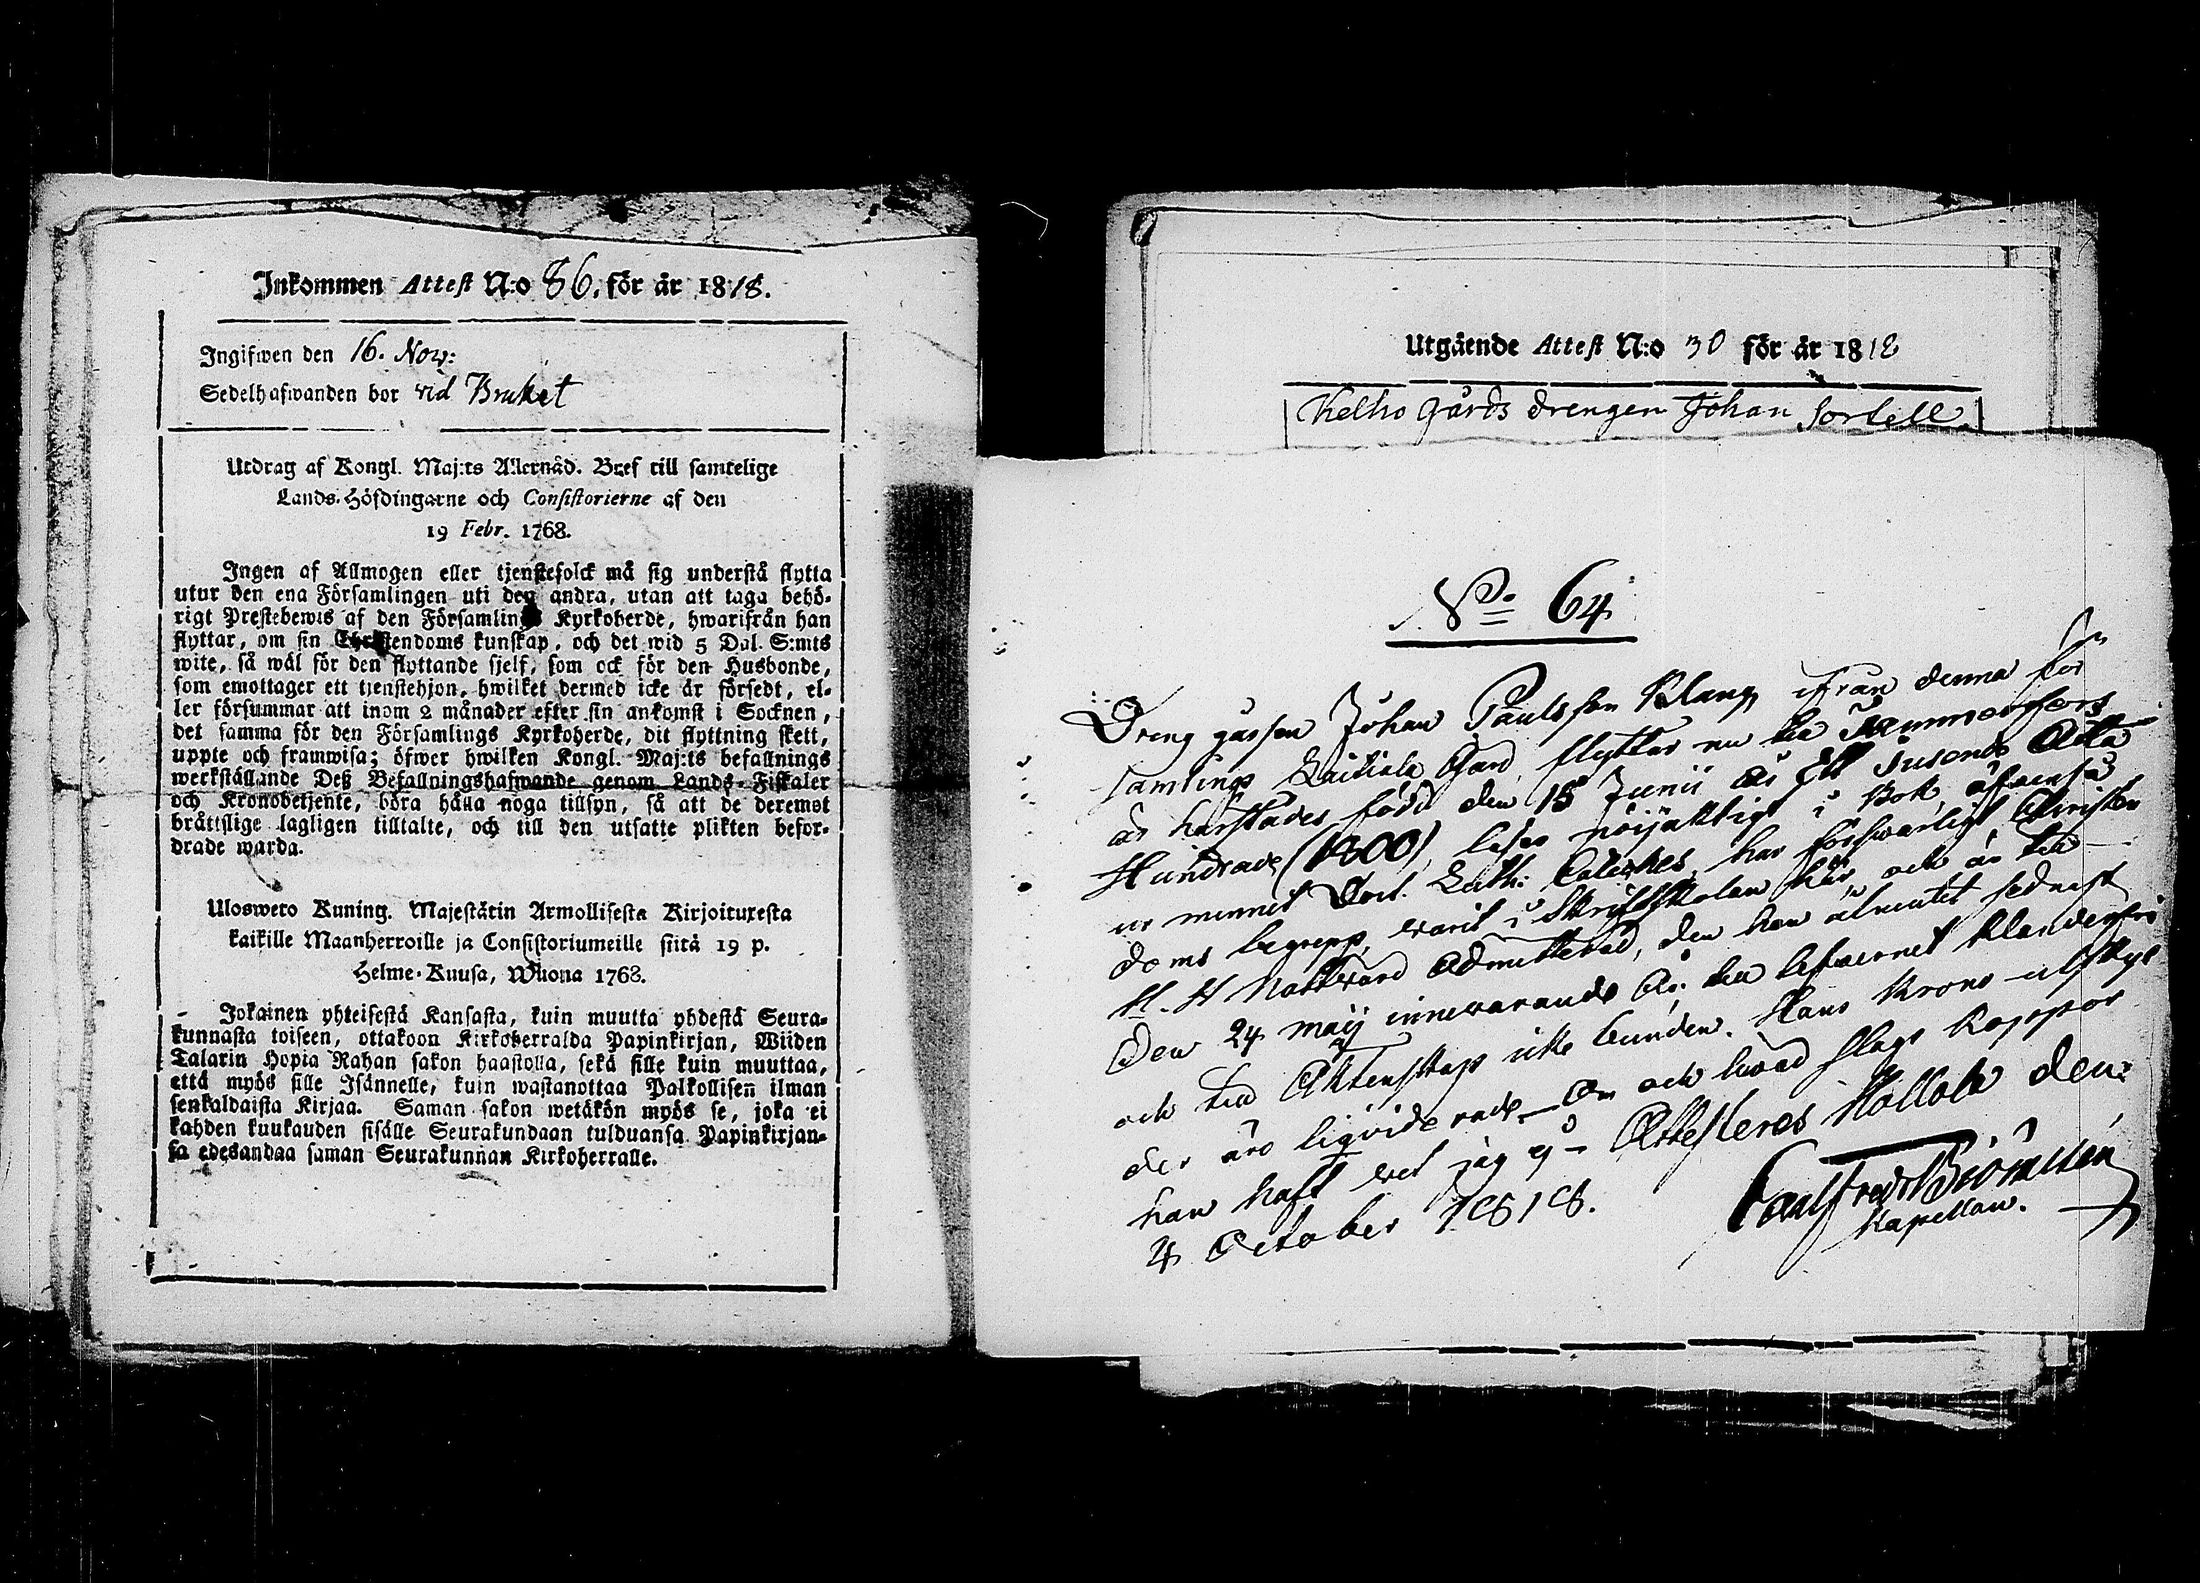 Inkommen Attest N:o 86. för år 1818.
Ingifwen den 16. Nov:
Sedelhafwanden bor vid Bruket
Utdrag af Kongl. Maj:ts Allernåd. Bref till samtelige
Lands-Höfdingarne och Consistorierne af den
19 Febr. 1768.
Ingen af Allmogen eller tjenstefolck må sig understå flytta
utur den ena Församlingen uti den andra, utan att taga behö-
rigt Prestebewis af den Församlings Kyrkoherde, hwarifrån han
flyttar, om sin Christendoms kunskap, och det wid 5 Dal. S:mts
wite, så wäl för den flyttande sjelf, som ock för den Husbonde,
som emottager ett tjenstehjon, hwilket dermed icke är försedt, el-
ler försummar att inom 2 månader efter sin ankomst i Socknen,
det samma för den Församlings Kyrkoherde, dit flyttning skett,
uppte och framwisa; öfwer hwilken Kongl. Maj:ts befallnings
werkställande Deß Befallningshafwande genom Lands-Fiskaler
och Kronobetjente, böra hålla noga tillsyn, så att de deremot
bråttslige lagligen tilltalte, och till den utsatte plikten befor-
drade warda.
Uloswero Kuning. Majestätin Armollisesta Kirjoituxesta
kaikille Maanherroille ja Consistoriumeille siitä 19 p.
Helme-Kuusa, Wuona 1768.
Jokainen yhteisestä Kansasta, kuin muutta yhdestä Seura-
kunnasta toiseen, ottakoon Kirkoherralda Papinkirjan, Wiiden
Talarin Hopia Rahan sakon haastolla, sekä sille kuin muuttaa,
että myös sille Isännelle, kuin wastanottaa Palkollisen ilman
senkaldaista Kirjaa. Saman sakon wetäkön myös se, joka ei
kahden kuukauden sisälle Seurakundaan tulduansa Papinkirjan-
sa edesandaa saman Seurakunnan Kirkoherralle.
Utgående Attest N:o 30 för år 1818
Kelho gårds drengen Johan Sortell.
No 64
Dreng gåssen Johan Paulsson Klang ifrån denna För
samlings Laitiala Gård, flyttar nu till Tammerfors,
är härstädes född den 15 Junii år Ett Tusende Åtta
Hundrade (1800), läser nöijaktigt i Bok äfvenså
ur minnet Doct. Luth: Cateches, har försvarligt Christen
doms begrepp, varit i Skriftskolan här, och är till
H. H Nattvard Admitterad, den han åtnutit sednast
Den 24 Maij innevarande År; till lefvernet klanderfri
och till Äktenskap icke bunden. Hans Krono utskyl
der äro liqviderade - Om och hvad slags koppor
han haft vet jag ej - Attesteres Hollola den
4 October 1818.
Kapellan.